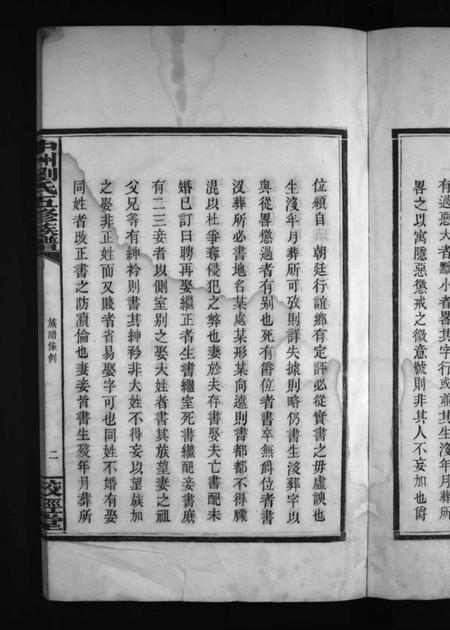 有過惡大者黜小者畧其字行或兼其生沒年月葬所
畧之以寓隱惡懲戒之微意號則非其人不妄加也爵
位頒自朝廷行誼鄉有定評必從實書之毋虛諛也
生沒年月葬所可攷則詳失據則略仍書生沒葬字以
與從畧懲過者有別也死有爵位者書卒無爵位者書
沒葬所必書地名某處某形某向遠則書都都不得朦
混以杜爭奪侵犯之弊也妻於夫存書娶夫亡書配未
婚已訂曰聘再娶繼正者生書繼室死書繼配妾書庶
有二三妾者以側室別之娶大姓者書其族望妻之祖
父兄等有紳衿則書其紳衿非大姓不得妄以望族加
之娶非正姓而又賤者省易娶字可也同姓不婚有娶
同姓者改正書之防瀆倫也妻妾皆書生歿年月葬所
中州劉氏五修族譜
族譜條例
二
校經堂